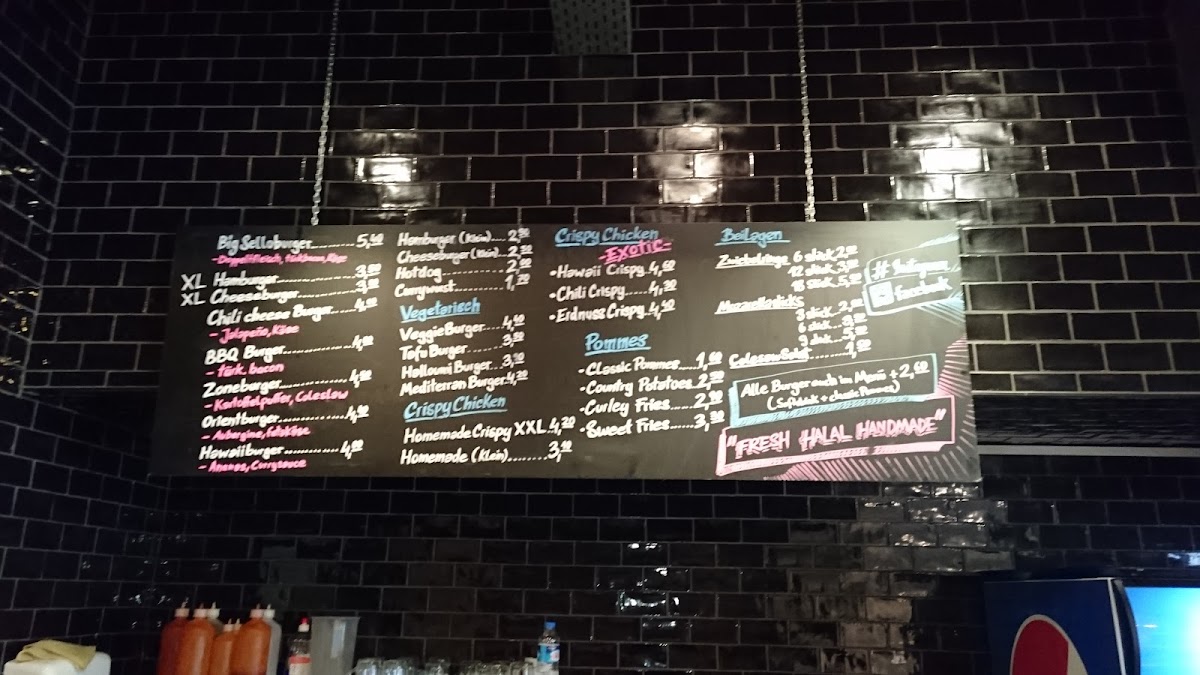 Big Selloburger 5,40
- Doppeltfleisch, türkbacon, Käse
XL Hamburger 3,50
XL Cheeseburger 3,90
Chili cheese Burger 4,90
- Jalapeño, Käse
BBQ Burger 4,90
- türk. bacon
Zoneburger 4,90
- Kartoffelpuffer, Coleslow
Orientburger 4,40
- Aubergine, fetakäse
Hawaiiburger 4,00
- Ananas, Currysauce
Hamburger (Klein) 2,30
Cheeseburger (Klein) 2,50
Hotdog 2,00
Currywurst
Vegetarisch
Veggie Burger 4,40
Tofu Burger
Halloumi Burger 3,90
Mediterran Burger 4,20
Crispy Chicken
Homemade Crispy XXL 4,20
Homemade (Klein) 3,10
Crispy Chicken
- EXOTIC -
• Hawaii Crispy 4,60
• Chili Crispy 4,30
• Erdnuss Crispy 4,40
Pommes
- Classic Pommes 1,60
- Country Potatoes
- Curley Fries 2,90
- Sweet Fries
Beilagen
Zwiebelringe 6 stück
12 stück
18 stück
Mozzarellasticks
3 stück
6 stück
9 stück
Coleslow Salat
Alle Burger auch im Menü + 2,60
(Softdrink + classic Pommes)
"FRESH HALAL HANDMADE"
# Instagram
facebook